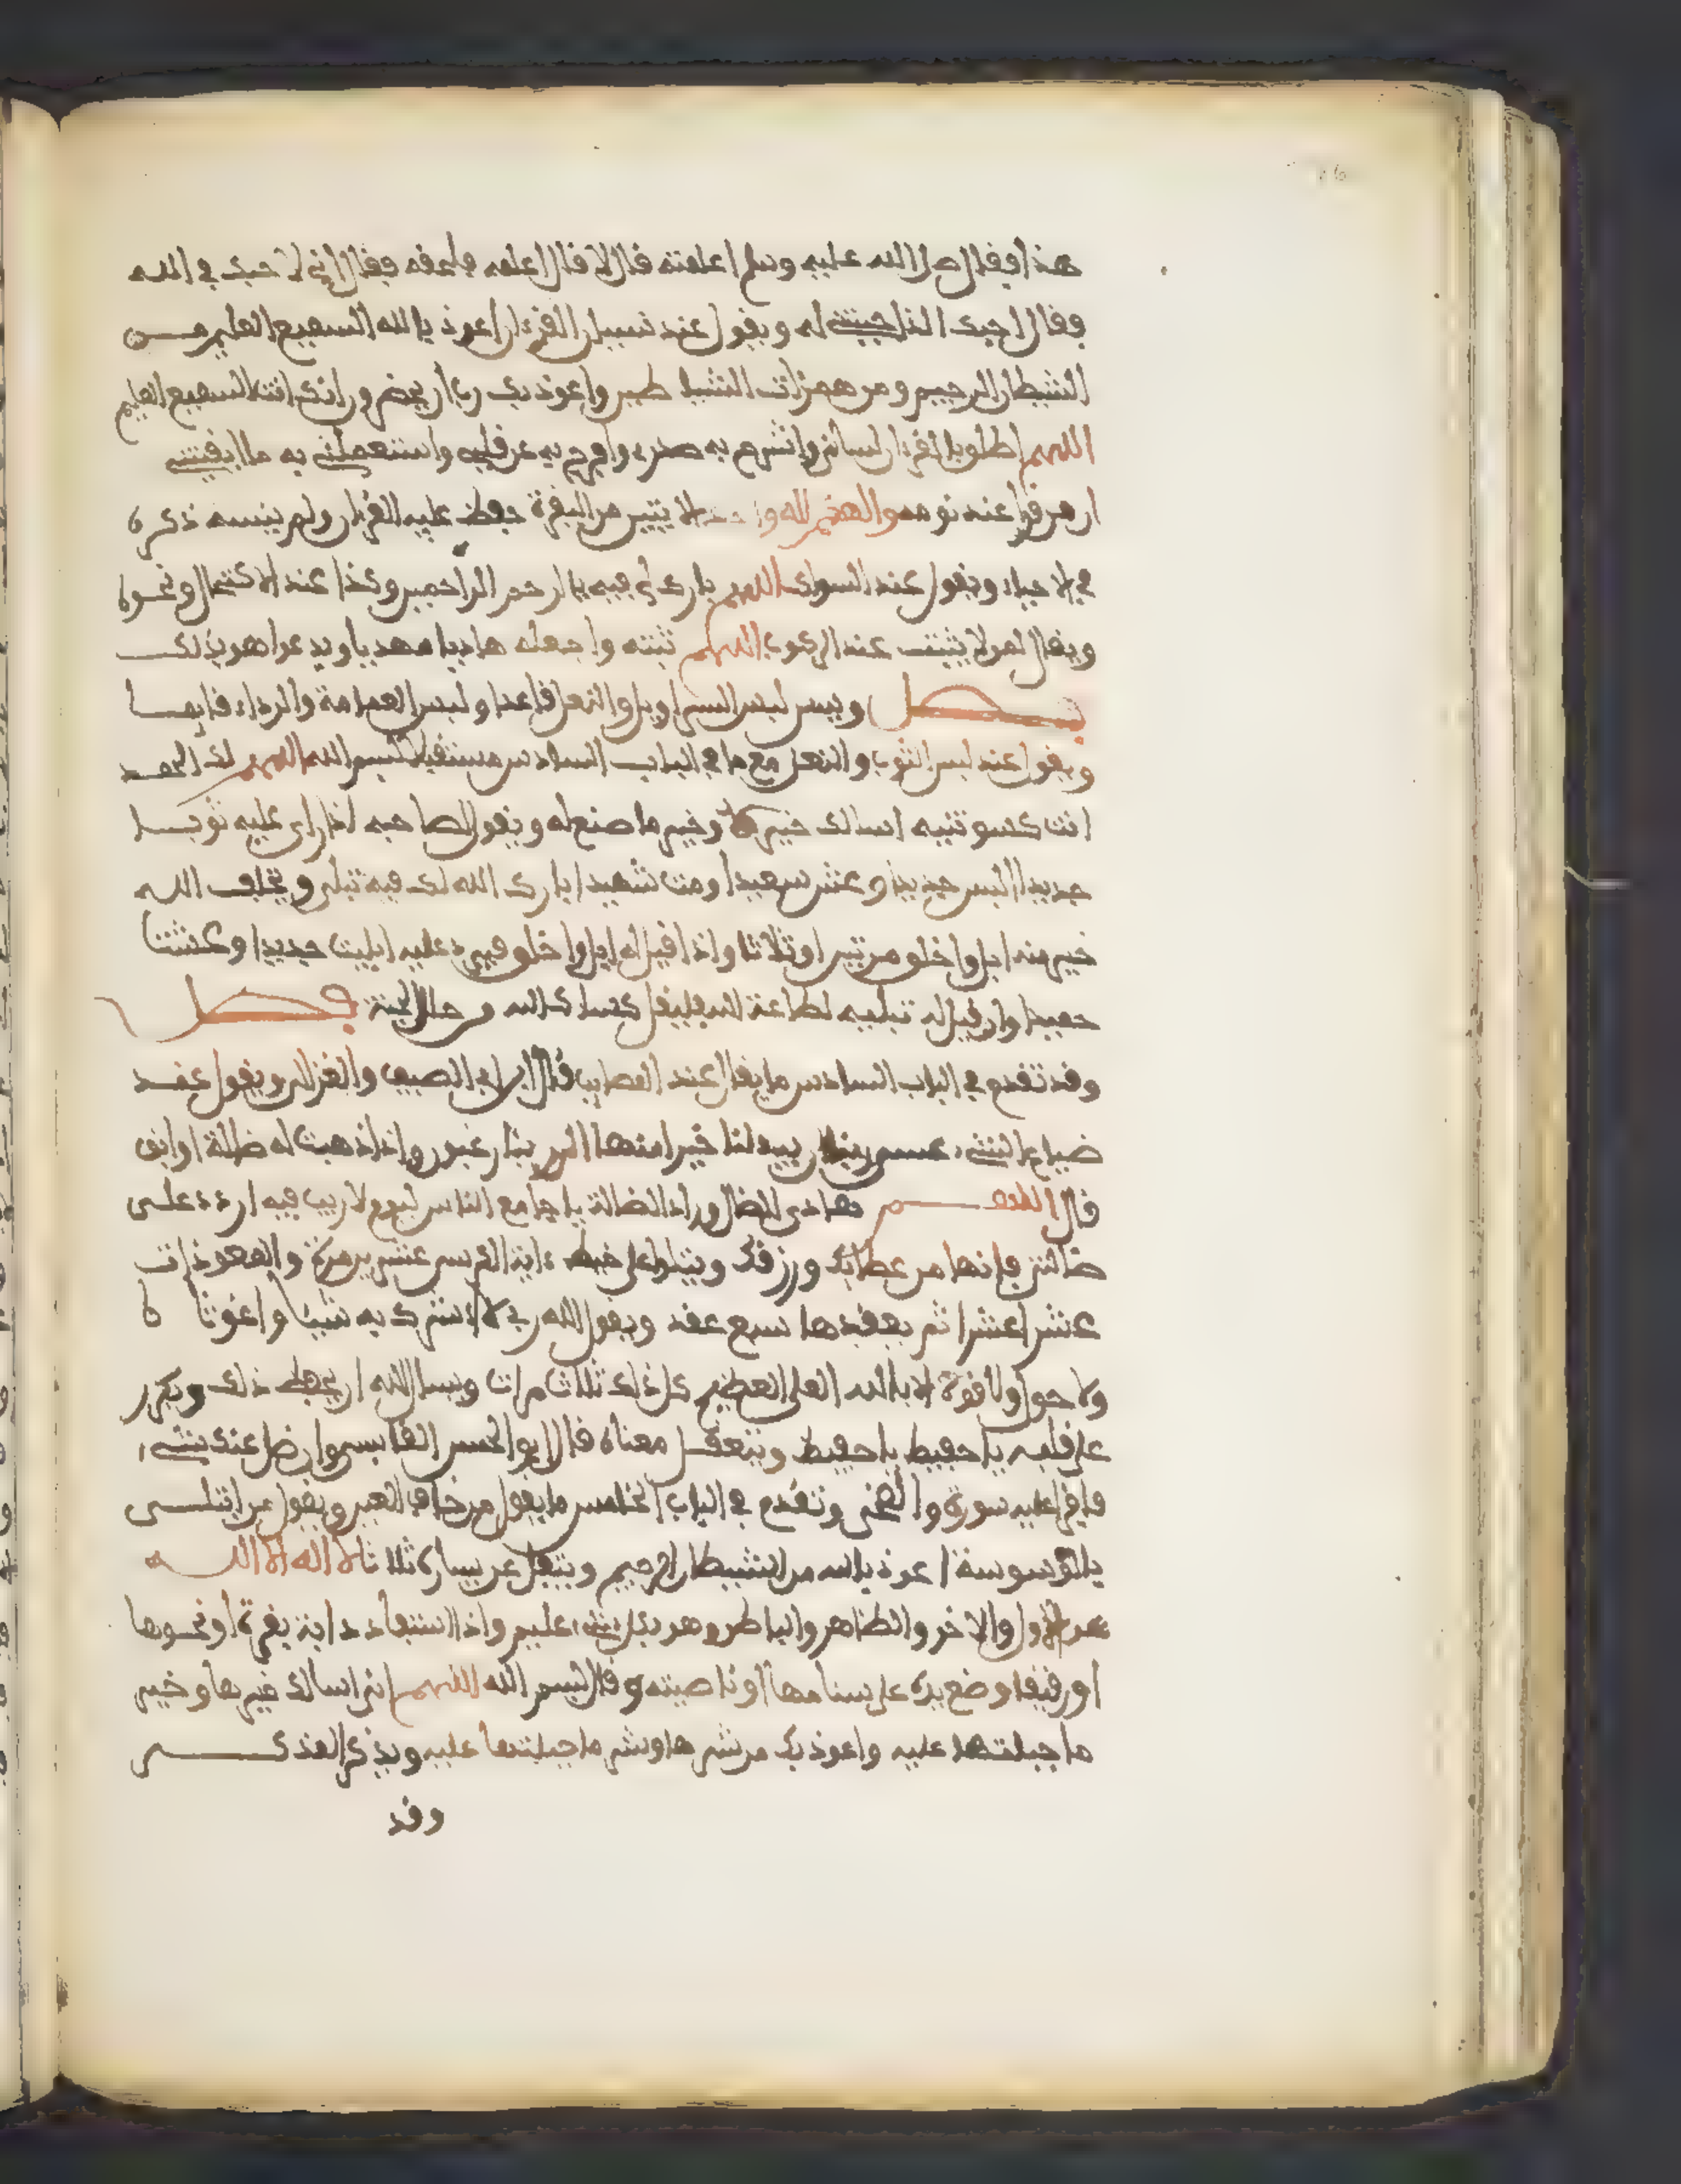 هذا فقال صلى الله عليه وسلم اعلمته قال لا قال اعلمه فلحقه فقال اني لاحبك في الله
فقال احبك الذي احببتني له ويقول عند نسيان القرءان اعوذ بالله السميع العليم مــن
الشيطان الرجيم ومن همزات الشيا طين واعوذ بك رب ان يحضرون انك انت السميع العليم
اللهم اطلق بالقرءان لساني واشرح به صدري وافرج به عن قلبي واستعملني به ما ابقيتني
ان من قرا عند نومه والهكم اله واحد الايتين من البقرة حفظ عليه القرءان ولم ينسه ذكره
في الاحياء ويقول عند السواك اللهم بارك لي فيه يا ارحم الراحمين وكذا عند الاكتحال ونحوه
ويقال لمن لا يثبت عند الركوب اللهم ثبته واجعله هاديا مهديا ويدعوا هو بذلك
فصل ويسن لبس السراويل والنعل قاعدا ولبس العمامة والرداء قايما
ويقول عند لبس الثوب والنعل مع ما في الباب السادس مستقبلا بسم الله اللهم لك الحمد
انت كسوتنيه اسالك خيره وخير ما صنع له ويقول لصاحبه اذا راى عليه ثوبا
جديدا البس جديدا وعش سعيدا ومت شهيدا بارك الله لك فيه تبلي ويخلف الله
خير منه ابل واخلق مرتين او ثلاثا واذا قيل له ابل واخلق فيرد عليه ابليت جديدا وعشت
حميدا وان قيل له تبليه لطاعة الله فليقل كساك الله من حلل الجنة فصل
وقد تقدم في الباب السادس ما يقال عند المصايب قال ابن ابي الصيف والغزالي ويقول عند
ضياع الشيء عسى ربنا ان يبدلنا خيرا منها انا الى ربنا راغبون واذا ذهبت له ضالة او ابق
قال اللهم هادي الضال وراد الضالة يا جامع الناس ليوم لا ريب فيه اردد علـى
ضالتي فانها من عطائك ورزقك ويتلوا على خيط ءاية الكرسي عشرين مرة والمعوذات
عشرا عشرا ثم يعقدها سبع عقد ويقول الله ربي لا اشرك به شيئا واغوثا ه
ولا حول ولا قوة الا بالله العلي العظيم كل ذلك ثلاث مرات ويسال الله ان يحفظ ذلك ويكرر
على قلبه يا حفيظ يا حفيظ ويتعقـل معناه قال ابو الحسن القابسي وان ضل عندك شيء
فاقرا عليه سورة والضحى وتقدم في الباب الخامس ما يقول من خاف العين ويقول من ابتلـى
بالوسوسة اعوذ بالله من الشيطان الرجيم ويتفل عن يساره ثلاثا لا اله الا اللـــه
هو الاول والاخر والظاهر والباطن وهو بكل شيء عليم واذا استفاد دابة بقرة او نحـوها
او رقيقا وضع يده على سنامها او ناصيته وقال بسم الله اللهم اني اسالك خيرها وخير
ما جبلتها عليه واعوذ بك من شرها وشر ما جبلتها عليه ويذكر المذكــر
وقد